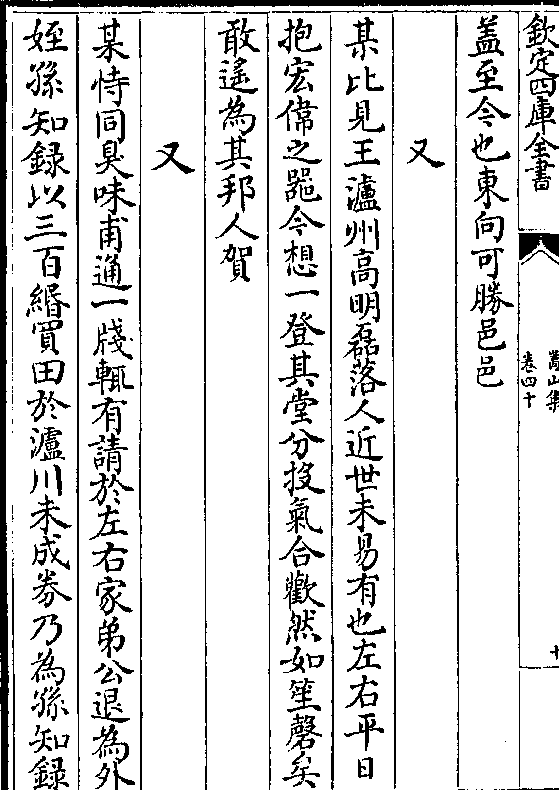 欽定四庫全書
嵩山集
卷四十
蓋至今也東向可勝邑邑
又
某比見王瀘州高明磊落人近世未易有也左右平日
抱宏偉之噐今想一登其堂分投氣合歡然如笙磬矣
敢遙為其邦人賀
又
某恃同臭味甫通一牋輒有請於左右家弟公退為外
姪孫知録以三百緡買田於瀘川未成券乃為孫知録